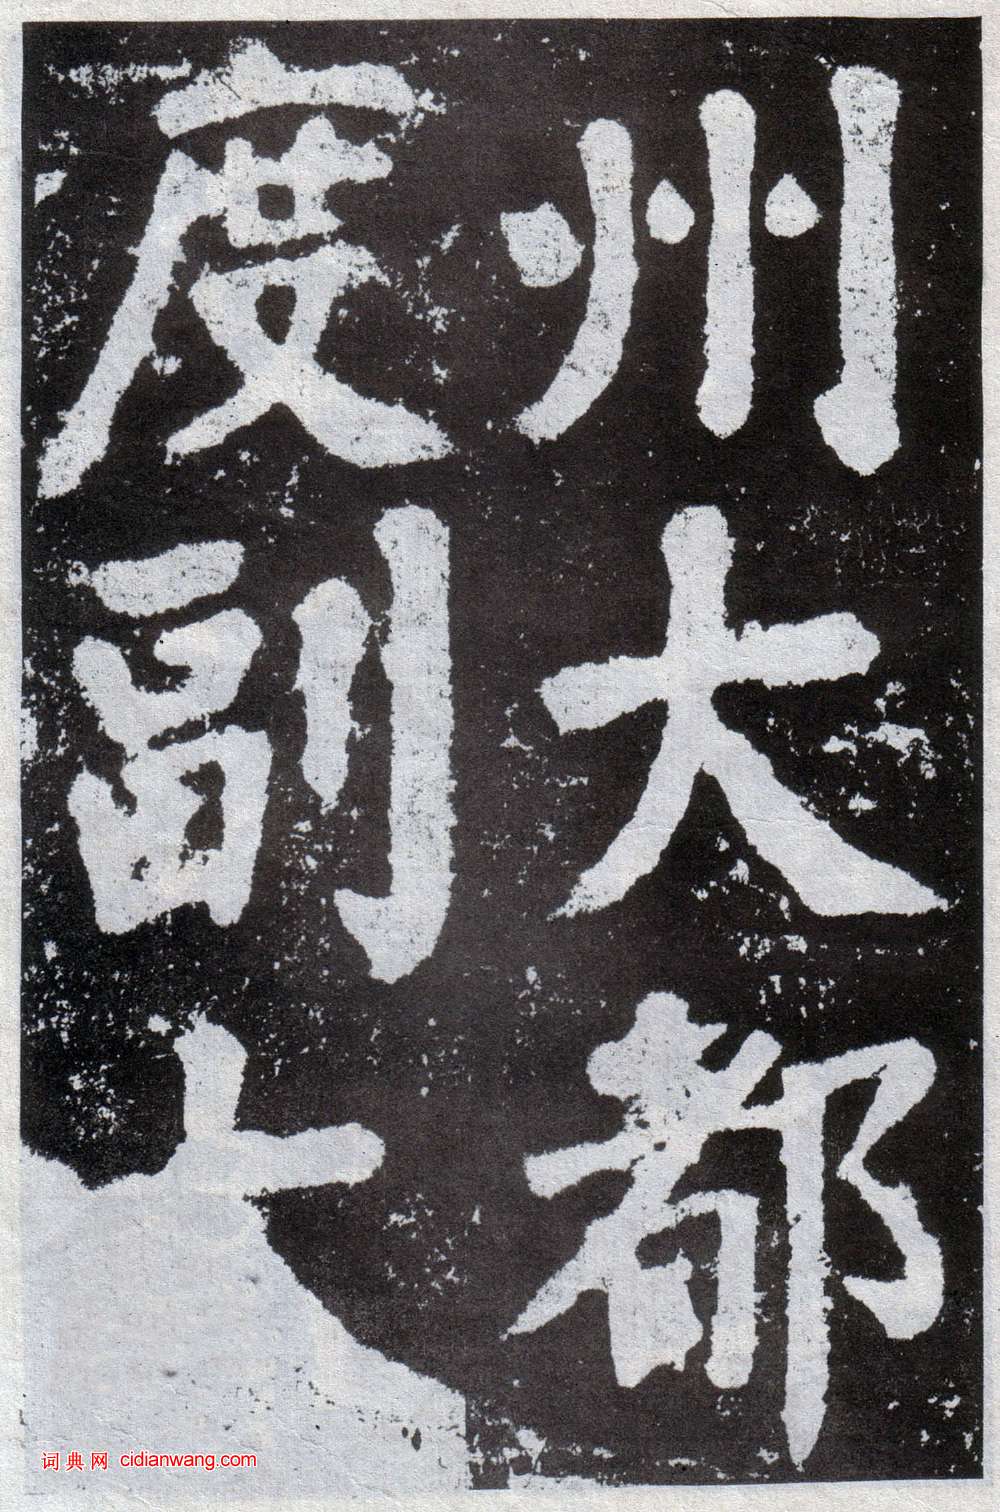 州大都
度副大
词典网 cidianwang.com